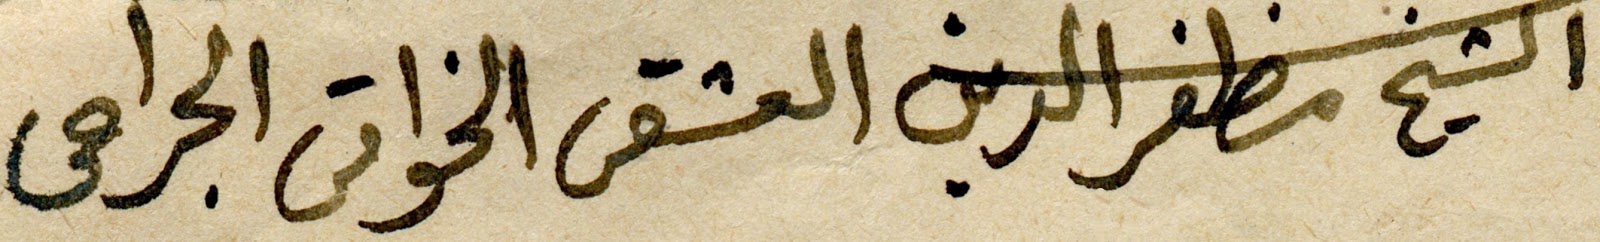 الشيخ مظفر الدين العشقى الخلوتى الجراحى